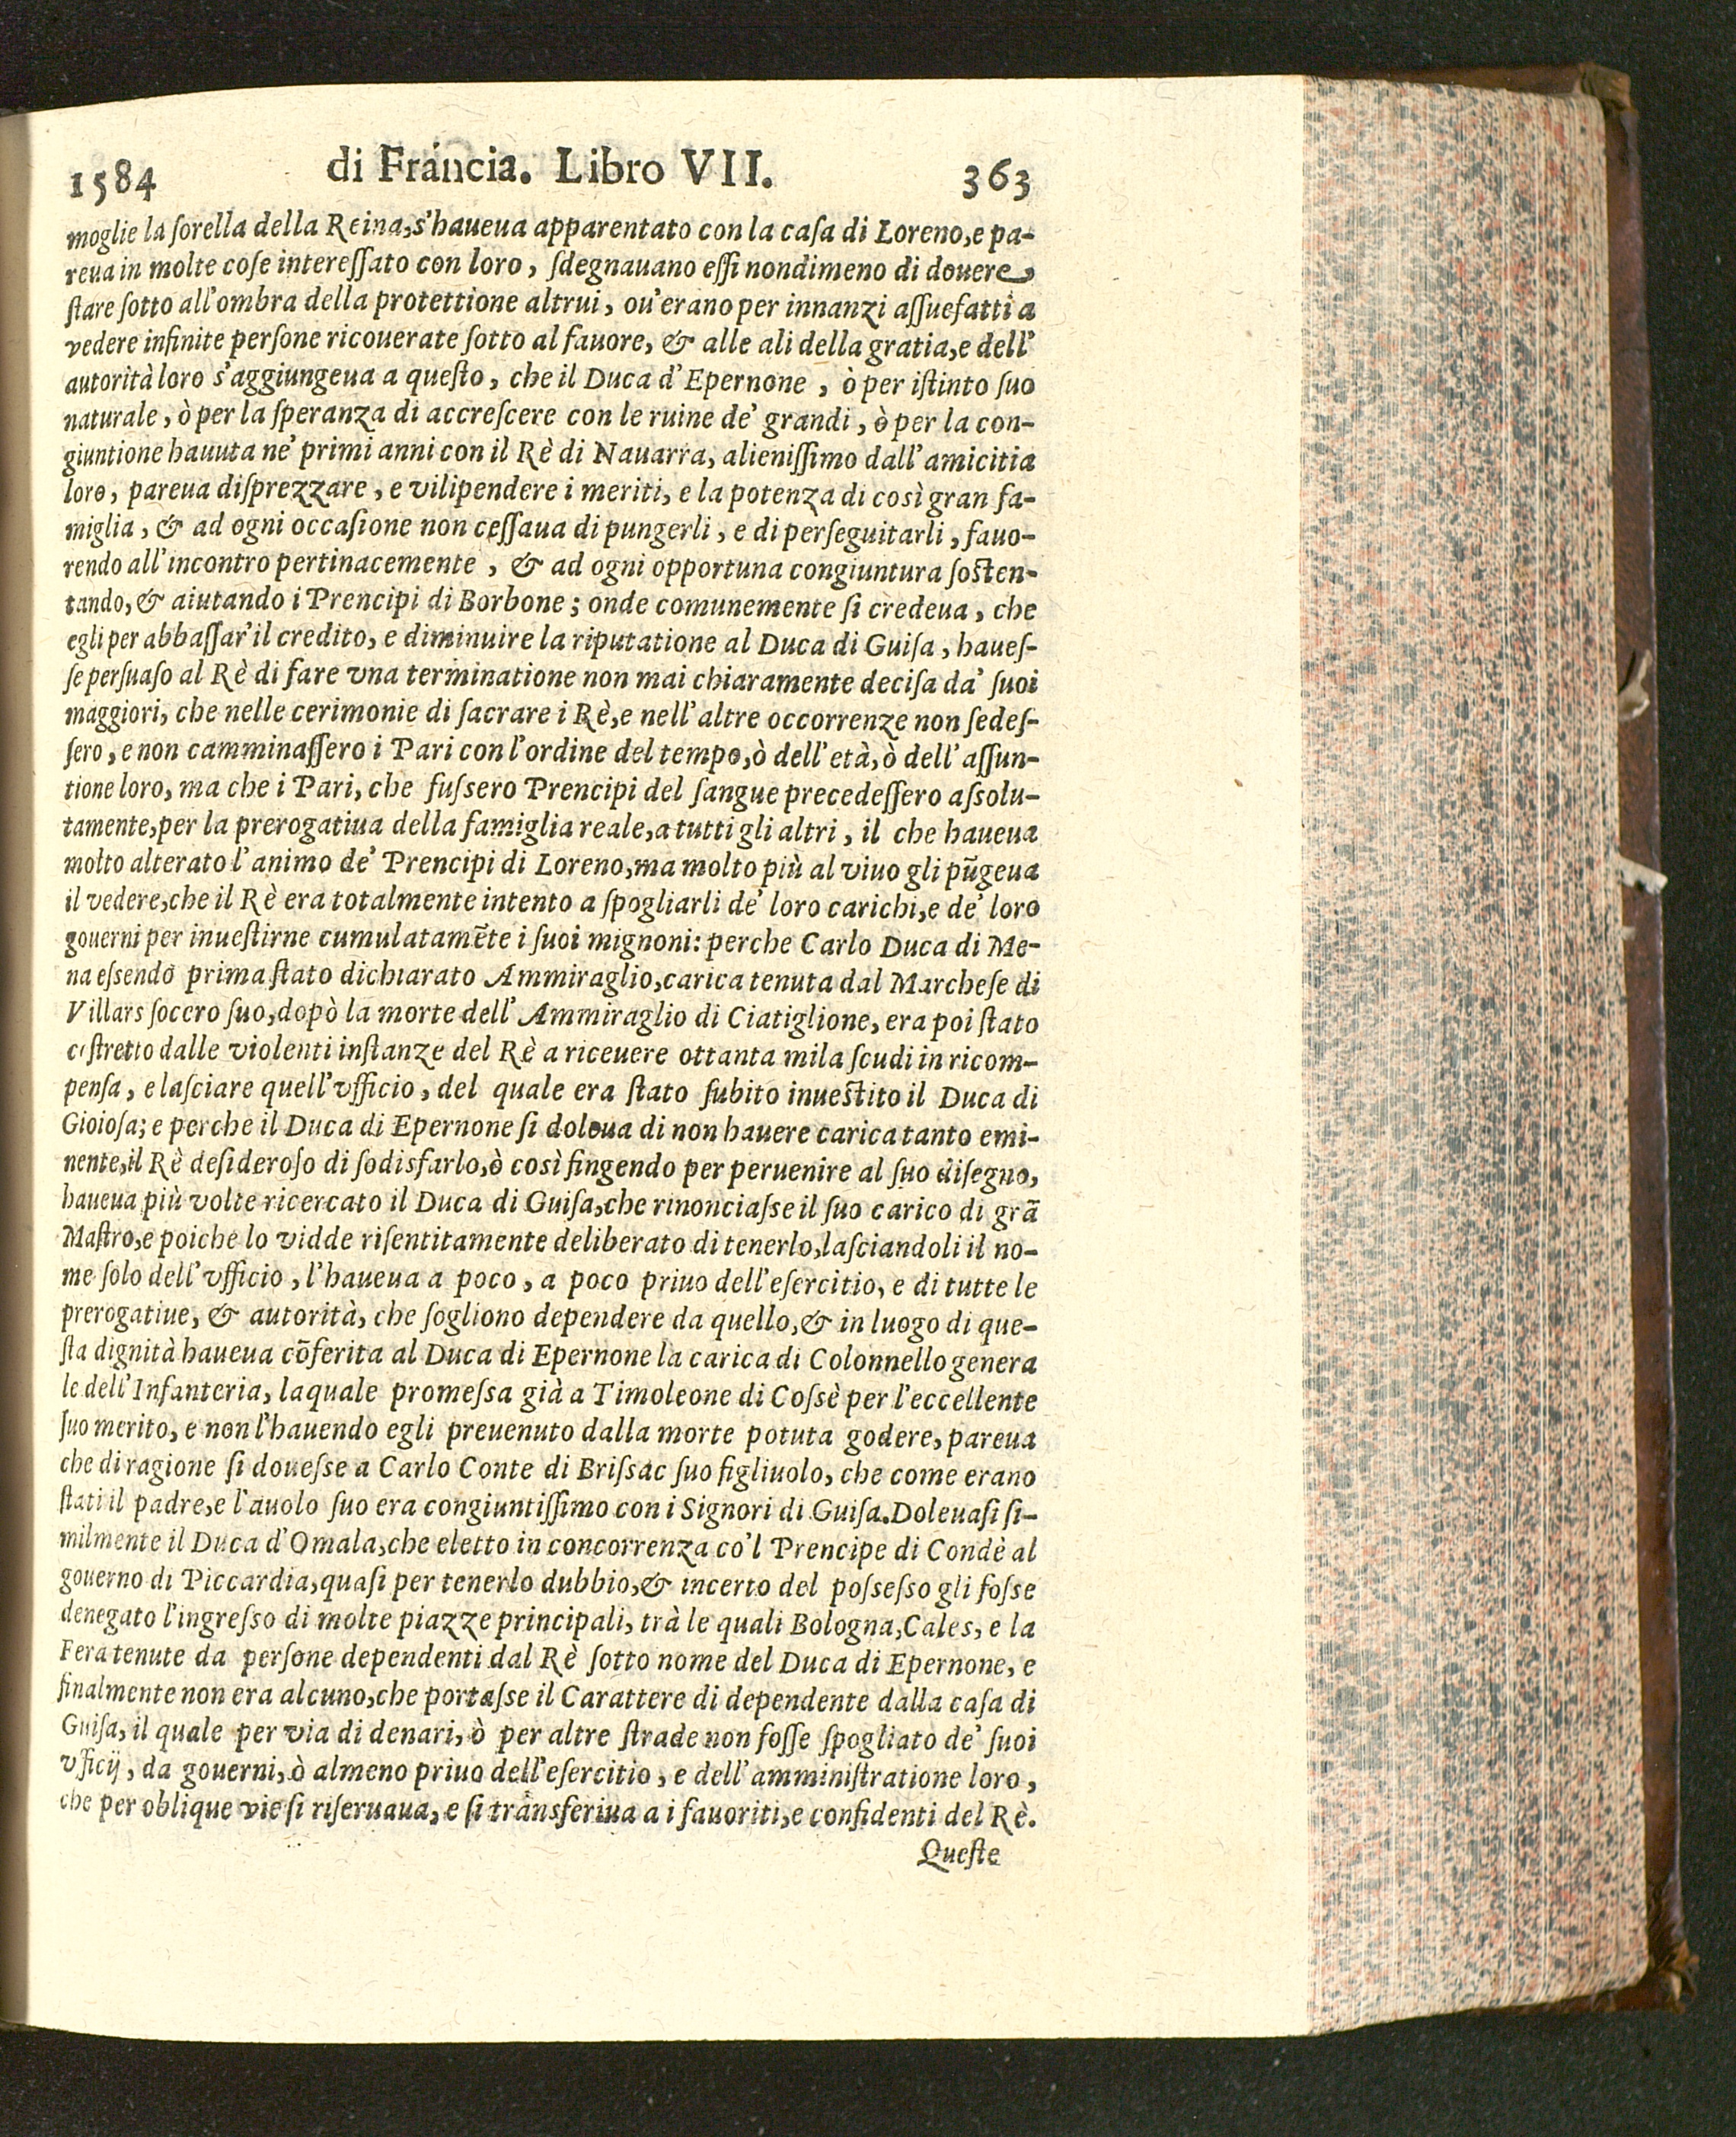 1584 di Francia. Libro VII. 363
moglie la ſorella della Reina, s'haueua apparentato con la caſa di Loreno, e pa-
reua in molte coſe intereſſato con loro, ſdegnauano eſſi nondimeno di douere
ſtare ſotto all'ombra della protettione altrui, ou'erano per innanzi aſſuefatti a
vedere infinite perſone ricouerate ſotto al fauore, & alle ali della gratia, e dell'
autorità loro s'aggiungeua a queſto, che il Duca d'Epernone, ò per iſtinto ſuo
naturale, ò per la ſperanza di accreſcere con le ruine de' grandi, ò per la con-
giuntione hauuta ne' primi anni con il Rè di Nauarra, alieniſſimo dall'amicitia
loro, pareua diſprezzare, e vilipendere i meriti, e la potenza di così gran fa-
miglia, & ad ogni occaſione non ceſſaua di pungerli, e di perſeguitarli, fauo-
rendo all'incontro pertinacemente, & ad ogni opportuna congiuntura ſoſten-
tando, & aiutando i Prencipi di Borbone; onde comunemente ſi credeua, che
egli per abbaſſar'il credito, e diminuire la riputatione al Duca di Guiſa, haueſ-
ſe perſuaſo al Rè di fare vna terminatione non mai chiaramente deciſa da' ſuoi
maggiori, che nelle cerimonie di ſacrare i Rè, e nell'altre occorrenze non ſedeſ-
ſero, e non camminaſſero i Pari con l'ordine del tempo, ò dell'età, ò dell'aſſun-
tione loro, ma che i Pari, che fuſsero Prencipi del ſangue precedeſſero aſsolu-
tamente, per la prerogatiua della famiglia reale, a tutti gli altri, il che haueua
molto alterato l'animo de' Prencipi di Loreno, ma molto più al viuo gli pũgeua
il vedere, che il Rè era totalmente intento a ſpogliarli de' loro carichi, e de' loro
gouerni per inueſtirne cumulatamẽte i ſuoi mignoni: perche Carlo Duca di Me-
na eſsendo prima ſtato dichiarato Ammiraglio, carica tenuta dal Marcheſe di
Villars ſocero ſuo, dopò la morte dell'Ammiraglio di Ciatiglione, era poi ſtato
coſtretto dalle violenti inſtanze del Rè a riceuere ottanta mila ſcudi in ricom-
penſa, e laſciare quell'vfficio, del quale era ſtato ſubito inueſtito il Duca di
Gioioſa; e perche il Duca di Epernone ſi doleua di non hauere carica tanto emi-
nente, il Rè deſideroſo di ſodisfarlo, ò così fingendo per peruenire al ſuo diſegno,
haueua più volte ricercato il Duca di Guiſa, che rinonciaſse il ſuo carico di grã
Maſtro, e poiche lo vidde riſentitamente deliberato di tenerlo, laſciandoli il no-
me ſolo dell'vfficio, l'haueua a poco, a poco priuo dell'eſercitio, e di tutte le
prerogatiue, & autorità, che ſogliono dependere da quello, & in luogo di que-
ſta dignità haueua cõferita al Duca di Epernone la carica di Colonnello genera
le dell'Infanteria, laquale promeſsa già a Timoleone di Coſsè per l'eccellente
ſuo merito, e non l'hauendo egli preuenuto dalla morte potuta godere, pareua
che di ragione ſi doueſse a Carlo Conte di Briſsac ſuo figliuolo, che come erano
ſtati il padre, e l'auolo ſuo era congiuntiſſimo con i Signori di Guiſa. Doleuaſi ſi-
milmente il Duca d'Omala, che eletto in concorrenza co'l Prencipe di Condè al
gouerno di Piccardia, quaſi per tenerlo dubbio, & incerto del poſseſso gli foſse
denegato l'ingreſso di molte piazze principali, trà le quali Bologna, Cales, e la
Fera tenute da perſone dependenti dal Rè ſotto nome del Duca di Epernone, e
finalmente non era alcuno, che portaſse il Carattere di dependente dalla caſa di
Guiſa, il quale per via di denari, ò per altre ſtrade non foſſe ſpogliato de' ſuoi
vficij, da gouerni, ò almeno priuo dell'eſercitio, e dell'amminiſtratione loro,
che per oblique vie ſi riſeruaua, e ſi transferiua a i fauoriti, e confidenti del Rè.
Queſte